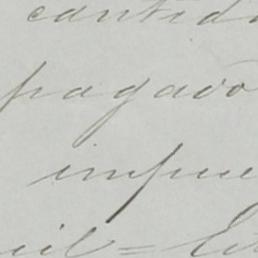 cantida
pagado
impue
il = Es